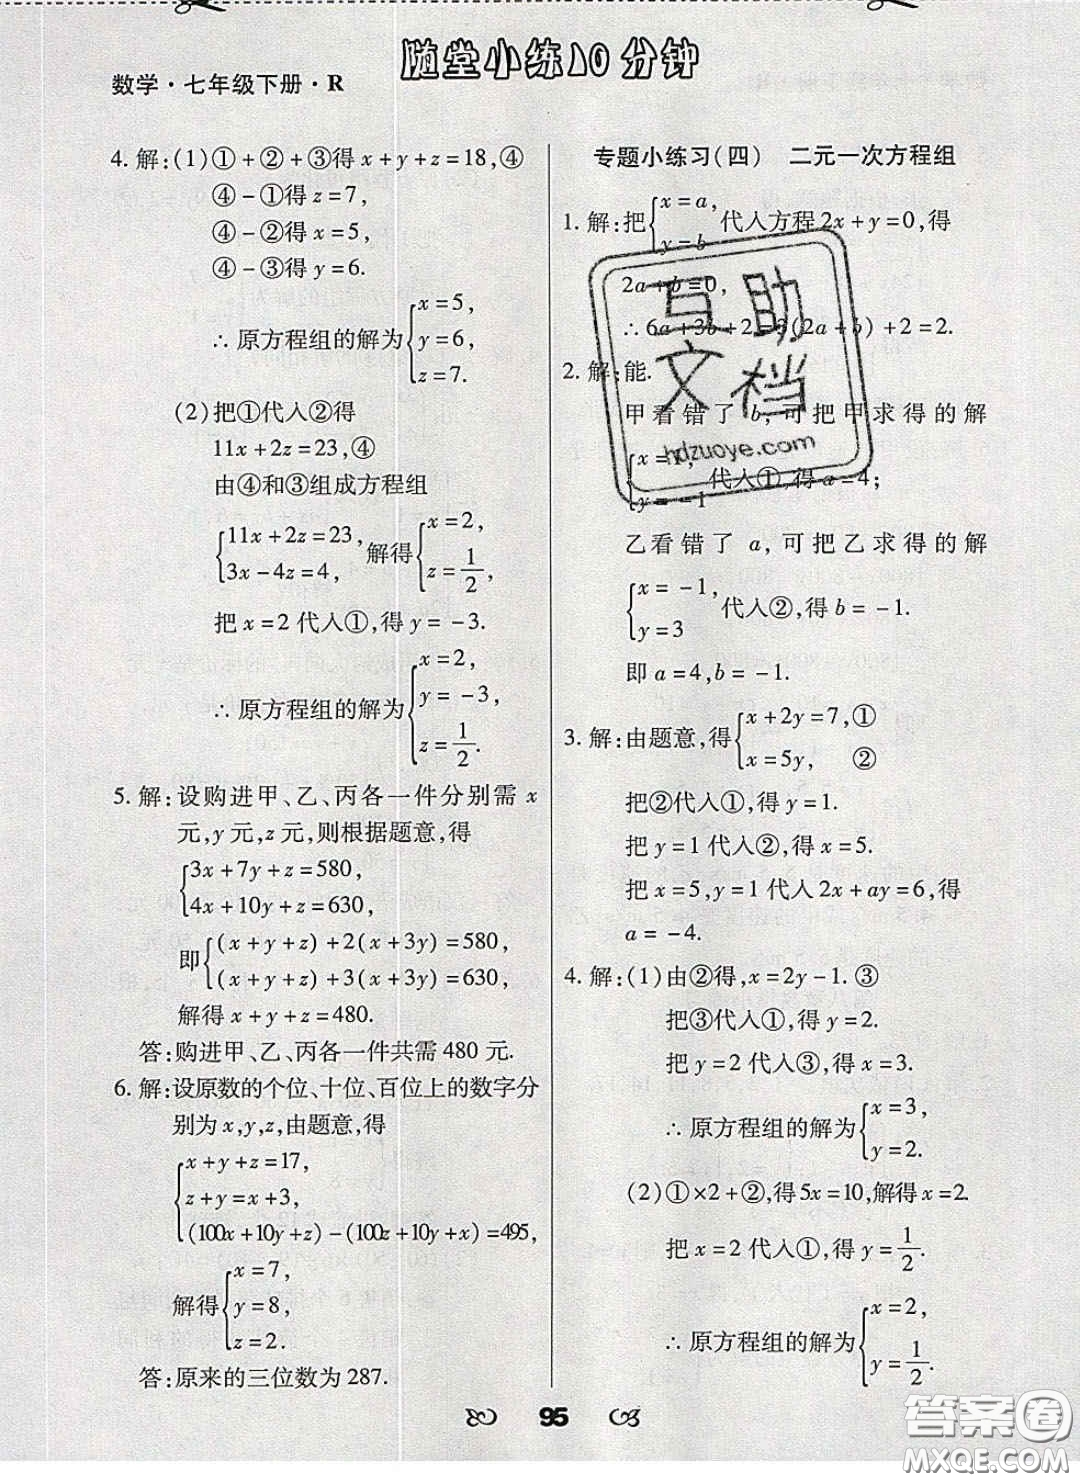 随堂小练10分钟
数学·七年级下册·R
4. 解:(1)①+②+③得x+y+z=18,④
④-①得z=7,
④-②得x=5,
④-③得y=6.
∴原方程组的解为{x=5,
y=6,
z=7.
(2)把①代入②得
11x+2z=23,④
由④和③组成方程组
{11x+2z=23,
3x-4z=4, 解得{x=2,
z=1/2,
把x=2代入①,得y=-3.
∴原方程组的解为{x=2,
y=-3,
z=1/2.
5. 解:设购进甲、乙、丙各一件分别需x
元,y元,z元,则根据题意,得
{3x+7y+z=580,
4x+10y+z=630,
即{(x+y+z)+2(x+3y)=580,
(x+y+z)+3(x+3y)=630,
解得x+y+z=480.
答:购进甲、乙、丙各一件共需480元.
6. 解:设原数的个位、十位、百位上的数字分
别为x,y,z,由题意,得
{x+y+z=17,
z+y=x+3,
(100x+10y+z)-(100z+10y+x)=495,
解得{x=7,
y=8,
z=2.
答:原来的三位数为287.
专题小练习(四) 二元一次方程组
1. 解:把{x=a,
y=b 代入方程2x+y=0,得
2a+b=0,
∴6a+3b+2=3(2a+b)+2=2.
2. 解:能.
甲看错了b,可把甲求得的解
{x=
y=-1 代入①,得a=4;
乙看错了a,可把乙求得的解
{x=-1,
y=3 代入②,得b=-1.
即a=4,b=-1.
3. 解:由题意,得{x+2y=7,①
x=5y, ②
把②代入①,得y=1.
把y=1代入②,得x=5.
把x=5,y=1代入2x+ay=6,得
a=-4.
4. 解:(1)由②得,x=2y-1.③
把③代入①,得y=2.
把y=2代入③,得x=3.
∴原方程组的解为{x=3,
y=2.
(2)①×2+②,得5x=10,解得x=2.
把x=2代入①,得y=1/2.
∴原方程组的解为{x=2,
y=1/2.
95
互助
文档
hdzuoye.com
答案圈
MXQE.COM